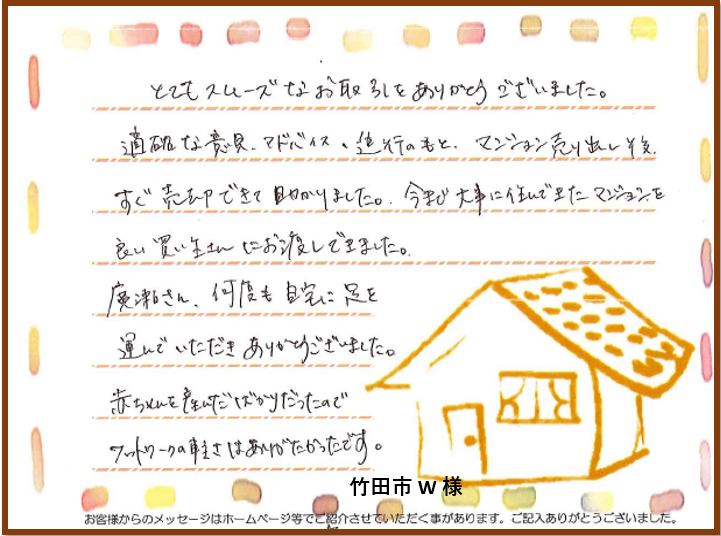 とてもスムーズなお取引をありがとうございました。
適確な意見、アドバイス、進行のもと、マンション売り出し後、
すぐ売却できて助かりました。今まで大事に住んできたマンションを
良い買い主さんにお渡しできました。
廣瀬さん、何度も自宅に足を
運んでいただきありがとうございました。
赤ちゃんを産んだばかりだったので
フットワークの軽さはありがたかったです。
竹田市 W 様
お客様からのメッセージはホームページ等でご紹介させていただく事があります。ご記入ありがとうございました。